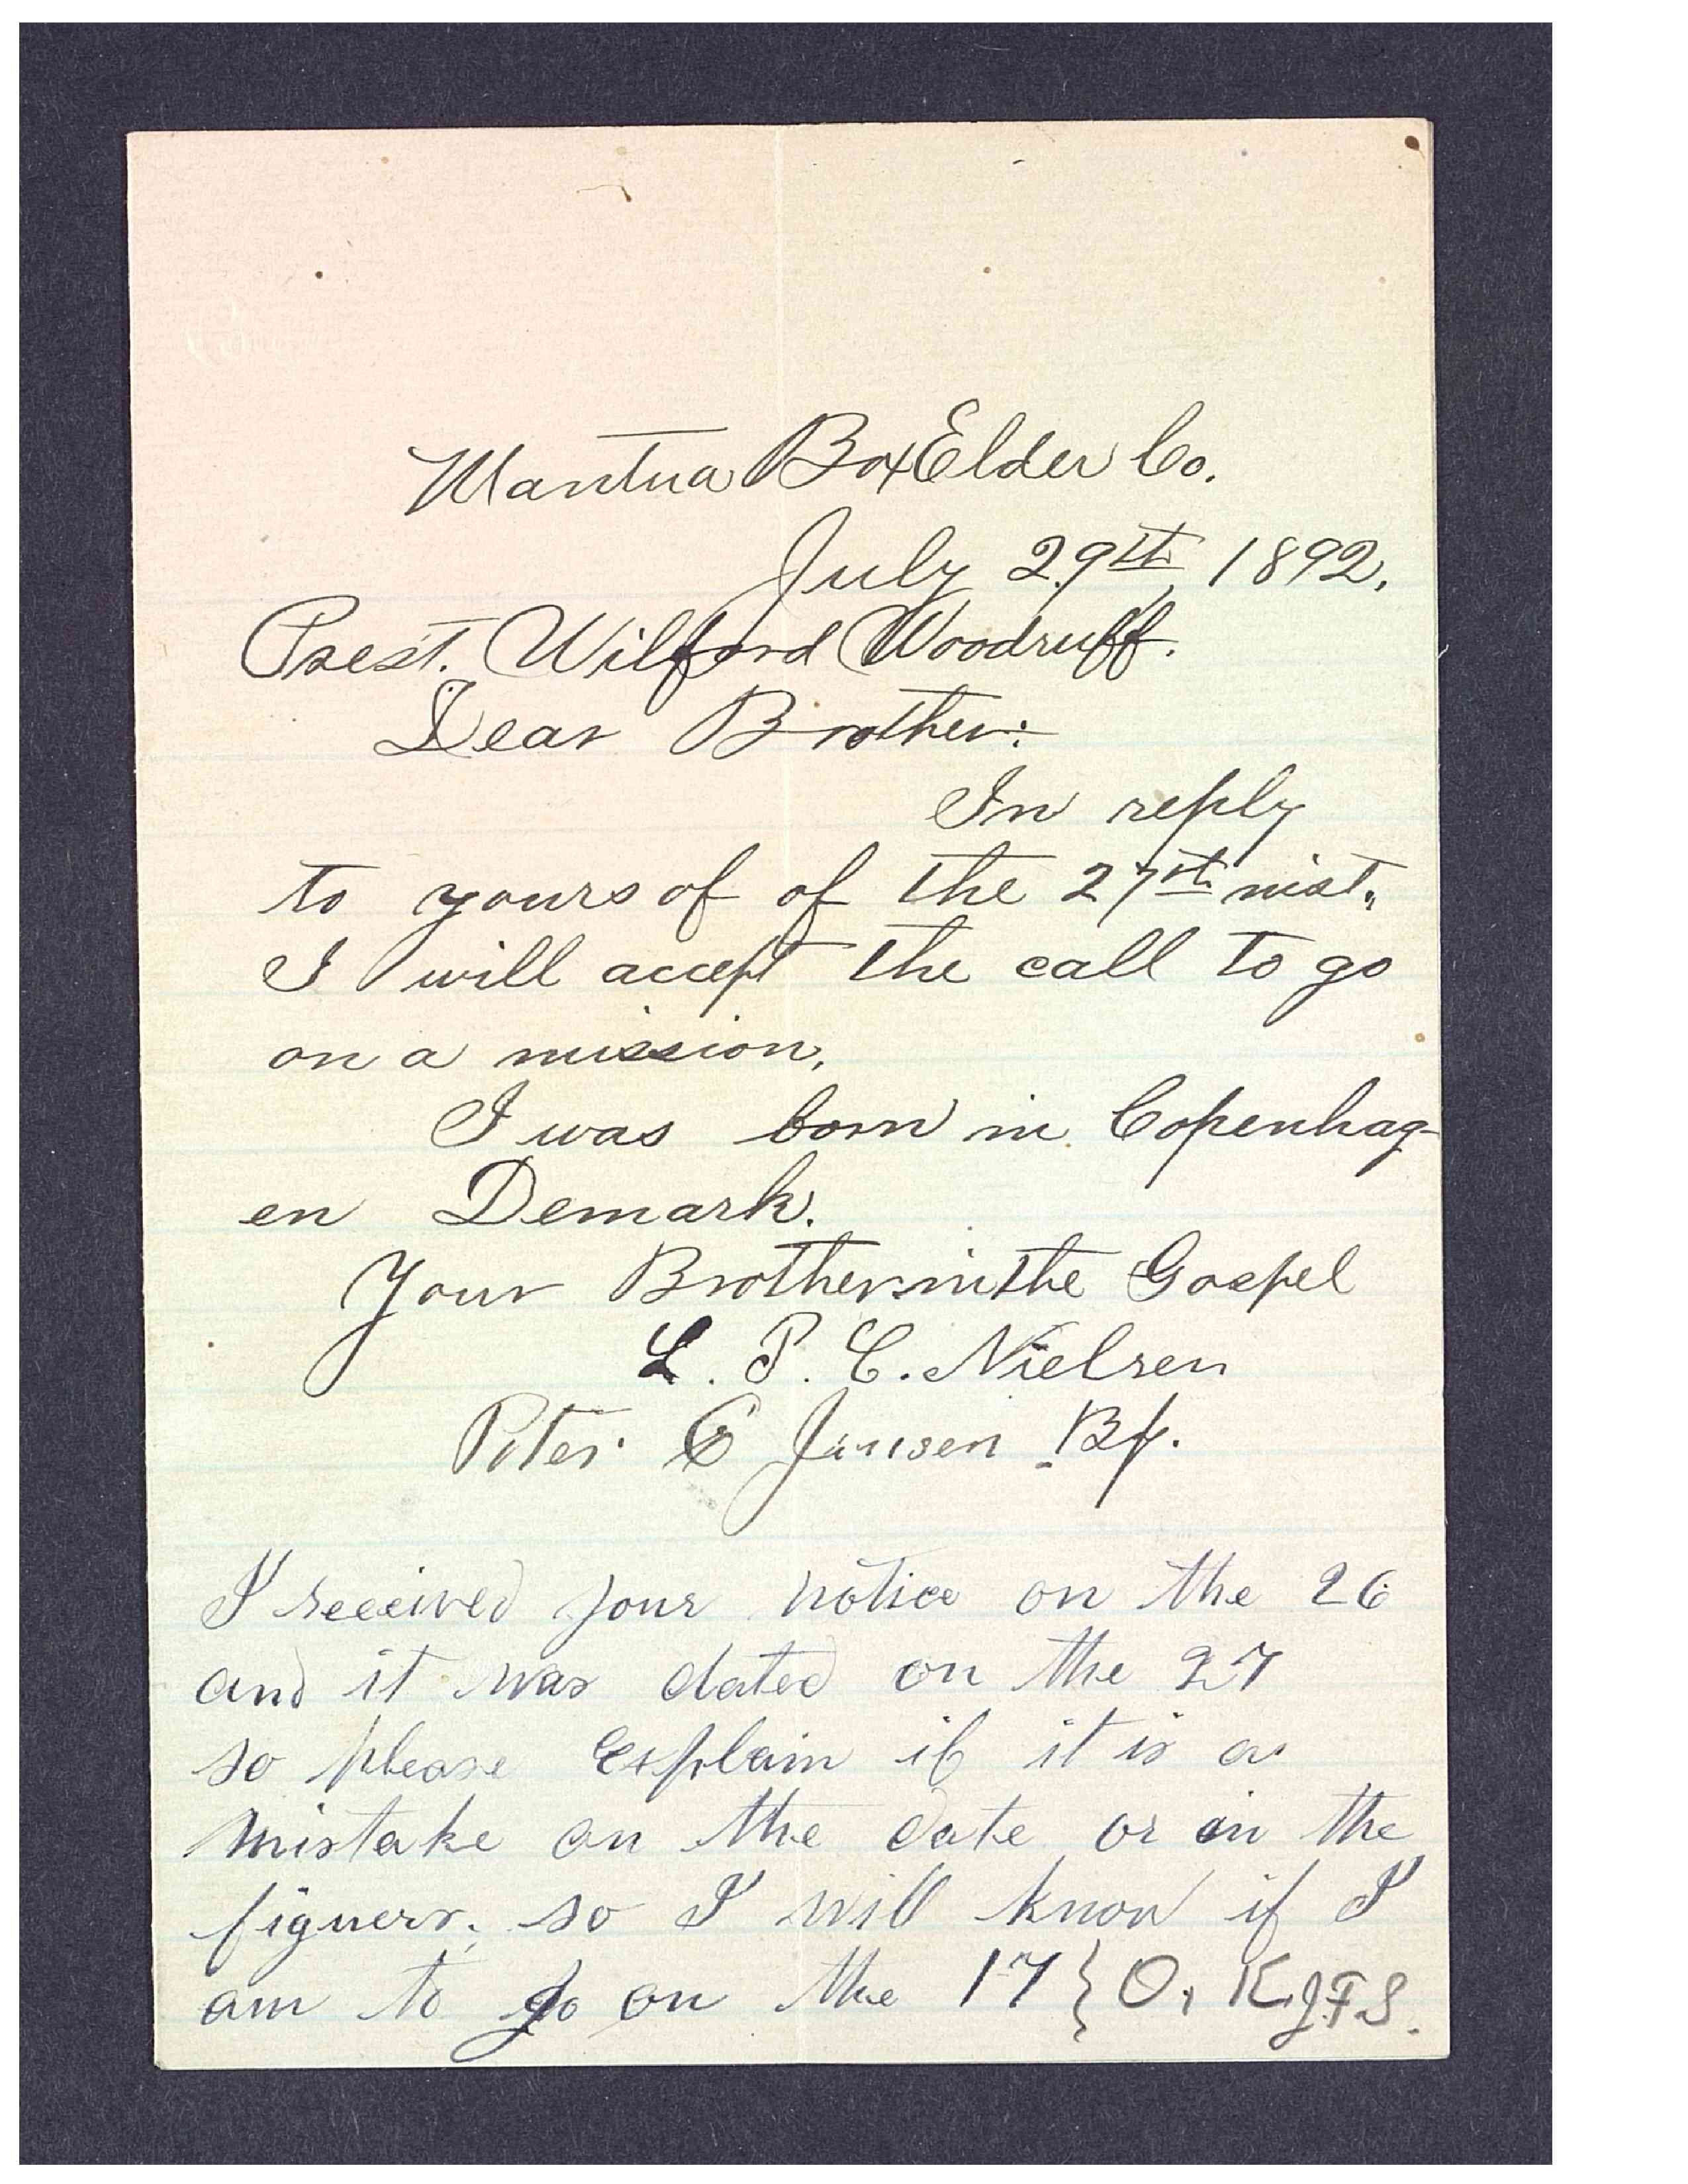 Mantua Box Elder Co.
July 29th, 1892.
Prest. Wilford Woodruff.
Dear Brother:
In reply
to yours of of the 27st. inst.,
I will accept the call to go
on a mission.
I was born in Copenhag-
en Demark.
Your Brother in the Gospel
L. P. C. Nielsen
Peter C Jensen Bp.
I received your notice on the 26
and it was dated on the 27
so please Explain if it is a
mistake on the date or in the
figuers. so I will know if I
am to go on the 17 } O. K. J.F.S.